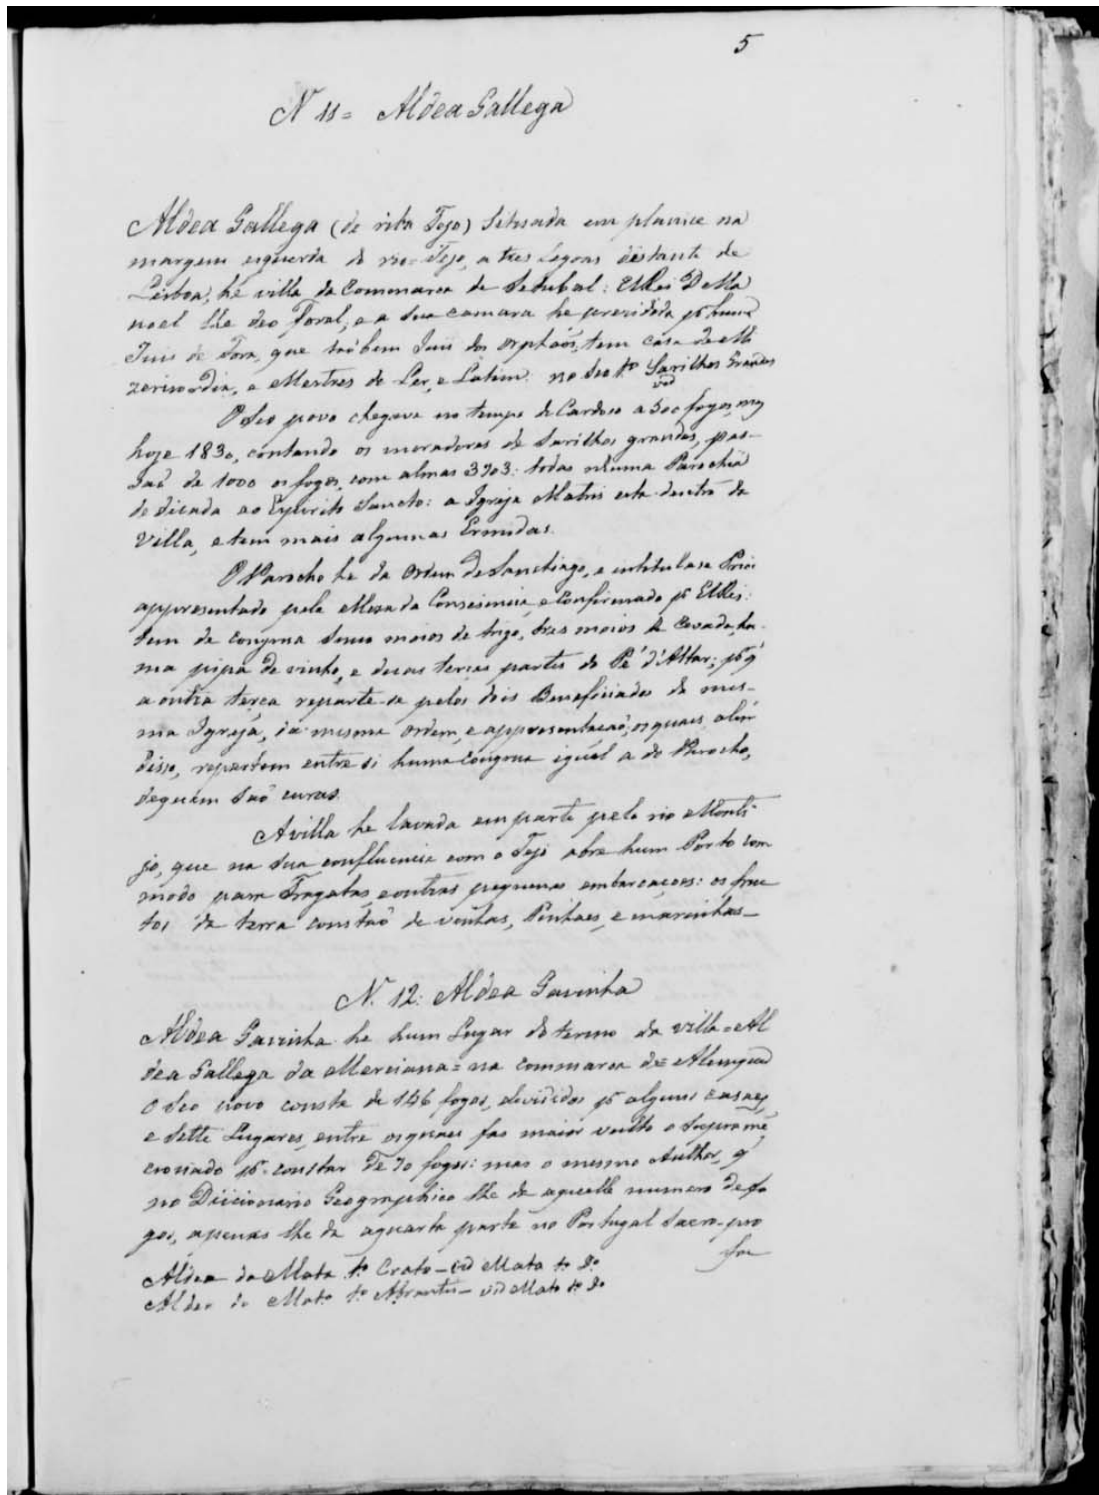 5
N 11= Aldea Gallega
Aldea Gallega (de riba Tejo) Situada em planice na
margem esquerda do rio=Tejo, a tres Legoas distante de
Lisboa, he villa da Commarca de Setubal: ElRei D Ma
noel lhe deo Foral, e a sua camara he prezidida pr hum
Juis de Fora, que taõbem Juis dos Orphaõs, tem casa de Mi
zericordia, e Mestres de Ler, e Latim. no seo to Sarilhos Grandes
vid
O seo povo chegava no tempo de Cardoso a 500 fogos, mas
hoje 1830, contando os moradores de Sarilhos grandes, pas-
saõ de 1000 os fogos, com almas 3703: todas n'huma Parochia
dedicada ao Espirito Sancto: a Igreja Matris esta dentro da
Villa, e tem mais algumas Ermidas.
O Parocho he da Ordem de Sanctiago, e intitulase Prior
appresentado pela Meza da Consciencia, e Confirmado pr ElRei:
tem de congrua sinco moios de trigo, tres moios de Cevada, hu-
ma pipa de vinho, e duas terças partes do Pé d'Altar; pr q'
a outra terça reparte-se pelos dois Beneficiados da mes-
ma Igreja, da mesma Ordem, e appresentaçaõ, os quais, alem
disso, repartem entre si huma congrua igual a do Parocho,
de quem saõ curas.
A villa he lavada em parte pelo rio Monti-
jo, que na sua confluencia com o Tejo abre hum Porto com
modo para Fragatas, e outras pequenas embarcaçoes: os fruc
tos da terra constaõ de vinhas, Pinhaes, e marinhas-
N. 12: Aldea Gavinha
Aldea Gavinha he hum Lugar do termo da villa=Al
dea Gallega da Merciana=na commarca de=Alenquer
O seo povo consta de 146 fogos, devididos pr alguns casaes,
e sette Lugares, entre os quais fas maior vulto o supramẽ
cionado pr constar de 70 fogos: mas o mesmo Author, q'
no Diccionario Geographico lhe da aquelle numero de fo
gos, apenas lhe da a quarta parte no Portugal Sacro-pro
fa-
Aldea da Mata to Crato-vid Mata to do
Aldea do Mato to Abrantes-vid Mato to do